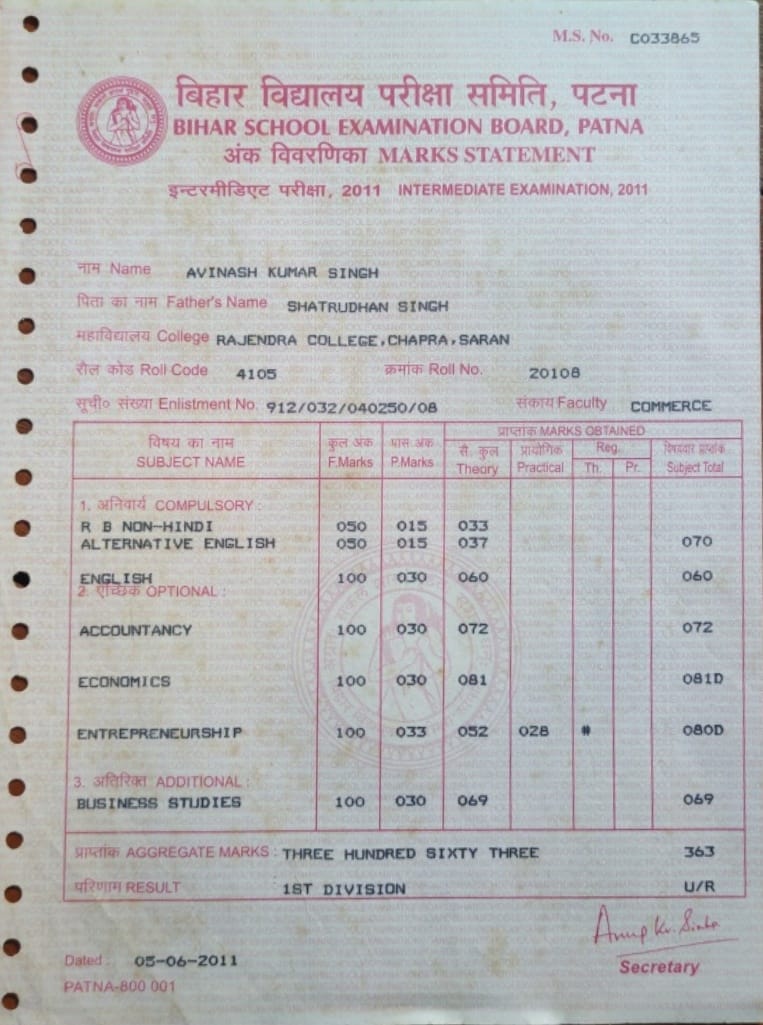 M.S. No. C033865
बिहार विद्यालय परीक्षा समिति, पटना
BIHAR SCHOOL EXAMINATION BOARD, PATNA
अंक विवरणिका MARKS STATEMENT
इन्टरमीडिएट परीक्षा, 2011 INTERMEDIATE EXAMINATION, 2011
नाम Name AVINASH KUMAR SINGH
पिता का नाम Father's Name SHATRUDHAN SINGH
महाविद्यालय College RAJENDRA COLLEGE,CHAPRA,SARAN
रौल कोड Roll Code 4105 क्रमांक Roll No. 20108
सूची० संख्या Enlistment No. 912/032/040250/08 संकाय Faculty COMMERCE
विषय का नाम कुल अंक पास अंक प्राप्तांक MARKS OBTAINED
SUBJECT NAME F.Marks P.Marks सै. कुल Theory प्रायोगिक Practical Reg. Th. Pr. विषयवार प्राप्तांक Subject Total
1. अनिवार्य COMPULSORY :
R B NON-HINDI 050 015 033
ALTERNATIVE ENGLISH 050 015 037 070
ENGLISH 100 030 060 060
2. ऐच्छिक OPTIONAL :
ACCOUNTANCY 100 030 072 072
ECONOMICS 100 030 081 081D
ENTREPRENEURSHIP 100 033 052 028 # 080D
3. अतिरिक्त ADDITIONAL :
BUSINESS STUDIES 100 030 069 069
प्राप्तांक AGGREGATE MARKS : THREE HUNDRED SIXTY THREE 363
परिणाम RESULT 1ST DIVISION U/R
Anup Kr. Sinha
Dated : 05-06-2011 Secretary
PATNA-800 001